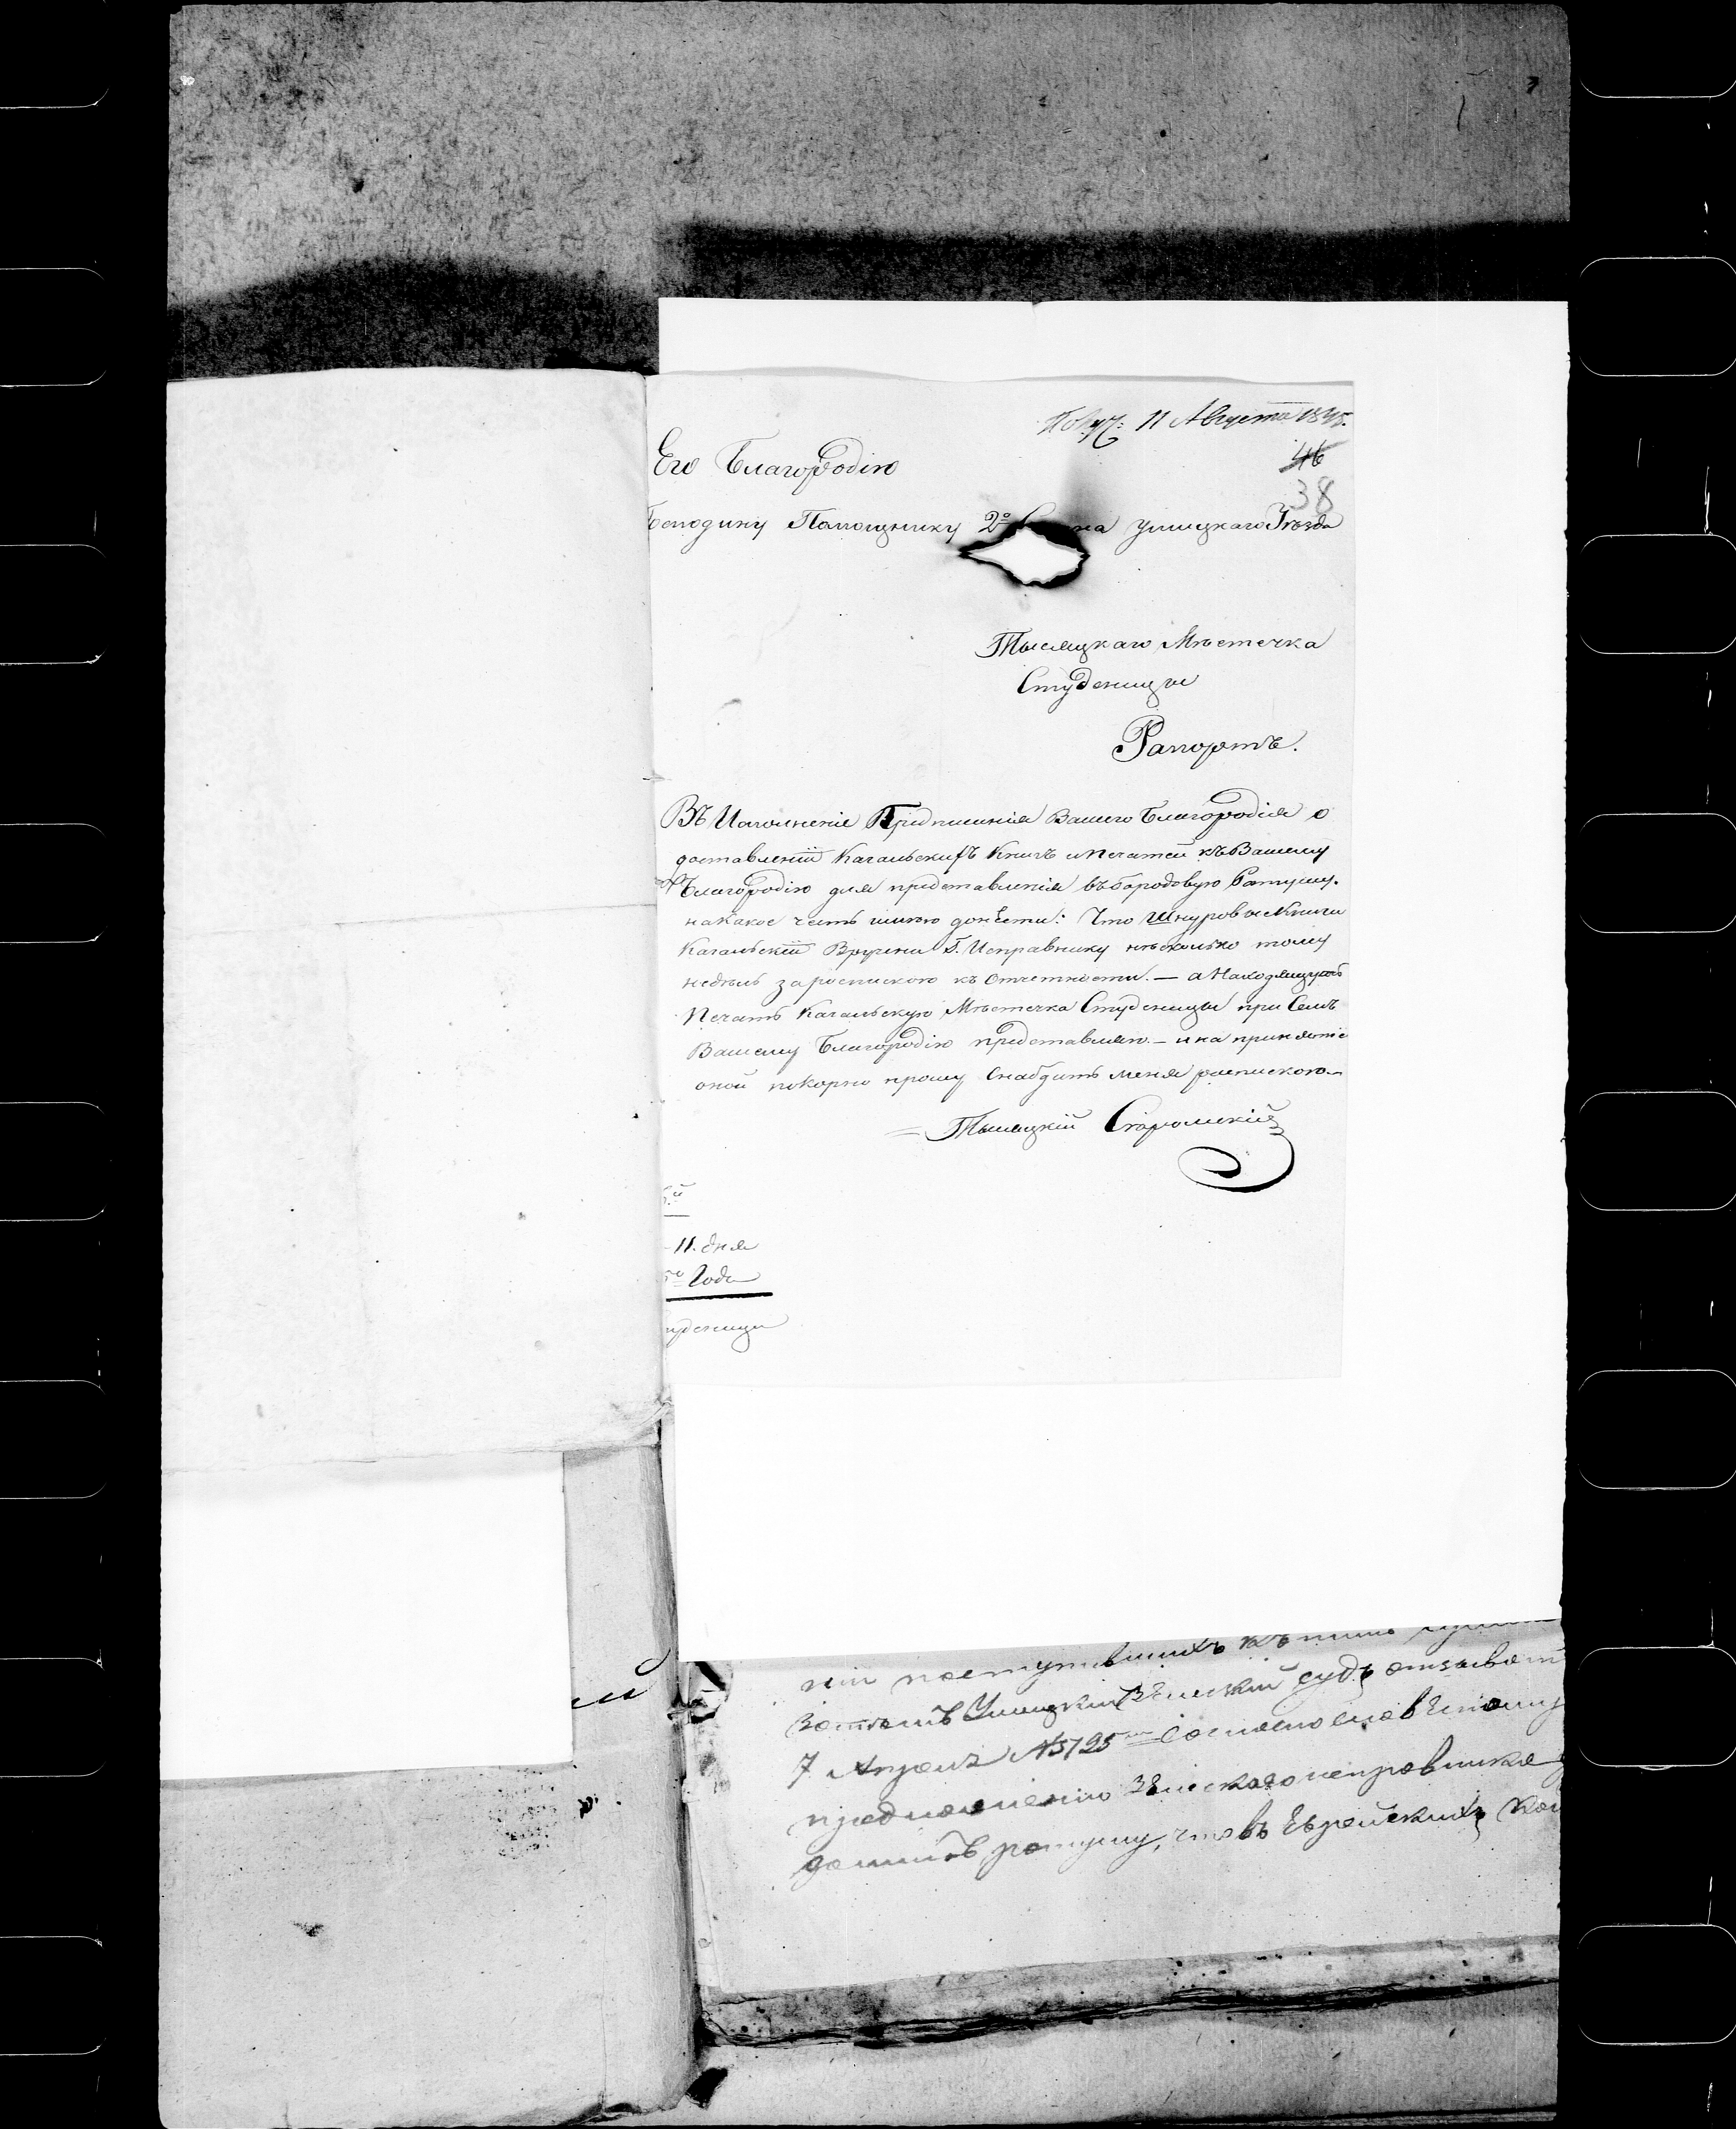 Получ: 11 Августа 1845.
46
38
Его Благородію
Господину Помощнику 2º Стана Ушицкаго Уѣзда
Тысяцкаго Мѣстечка
Студеницы
Рапортъ.
Въ Исполненіе Предписанія Вашего Благородія о
доставленіи Кагальскихъ Книгъ и Печатей къ Вашему
Благородію для представленія въ Городовую Ратушу.
на какое честь имѣю донести: Что Шнуровые Книги
Кагальскій Вручени Г. Исправнику нѣсколько тому
недѣль за роспискою къ Отчетности. — а Находящуюсь
Печать Кагальскую Мѣстечка Студеницы при Семъ
Вашему Благородію представляю. — и на принятіе
оной покорно прошу Снабдить меня роспискою. —
Тысяцкій
11. дня
Года
уденица
поступившихъ къ
Ушицкій Земскій Судъ отзывомъ
7 Апреля № 5725
земскаго исправника
ратушу, что въ Еврейскихъ